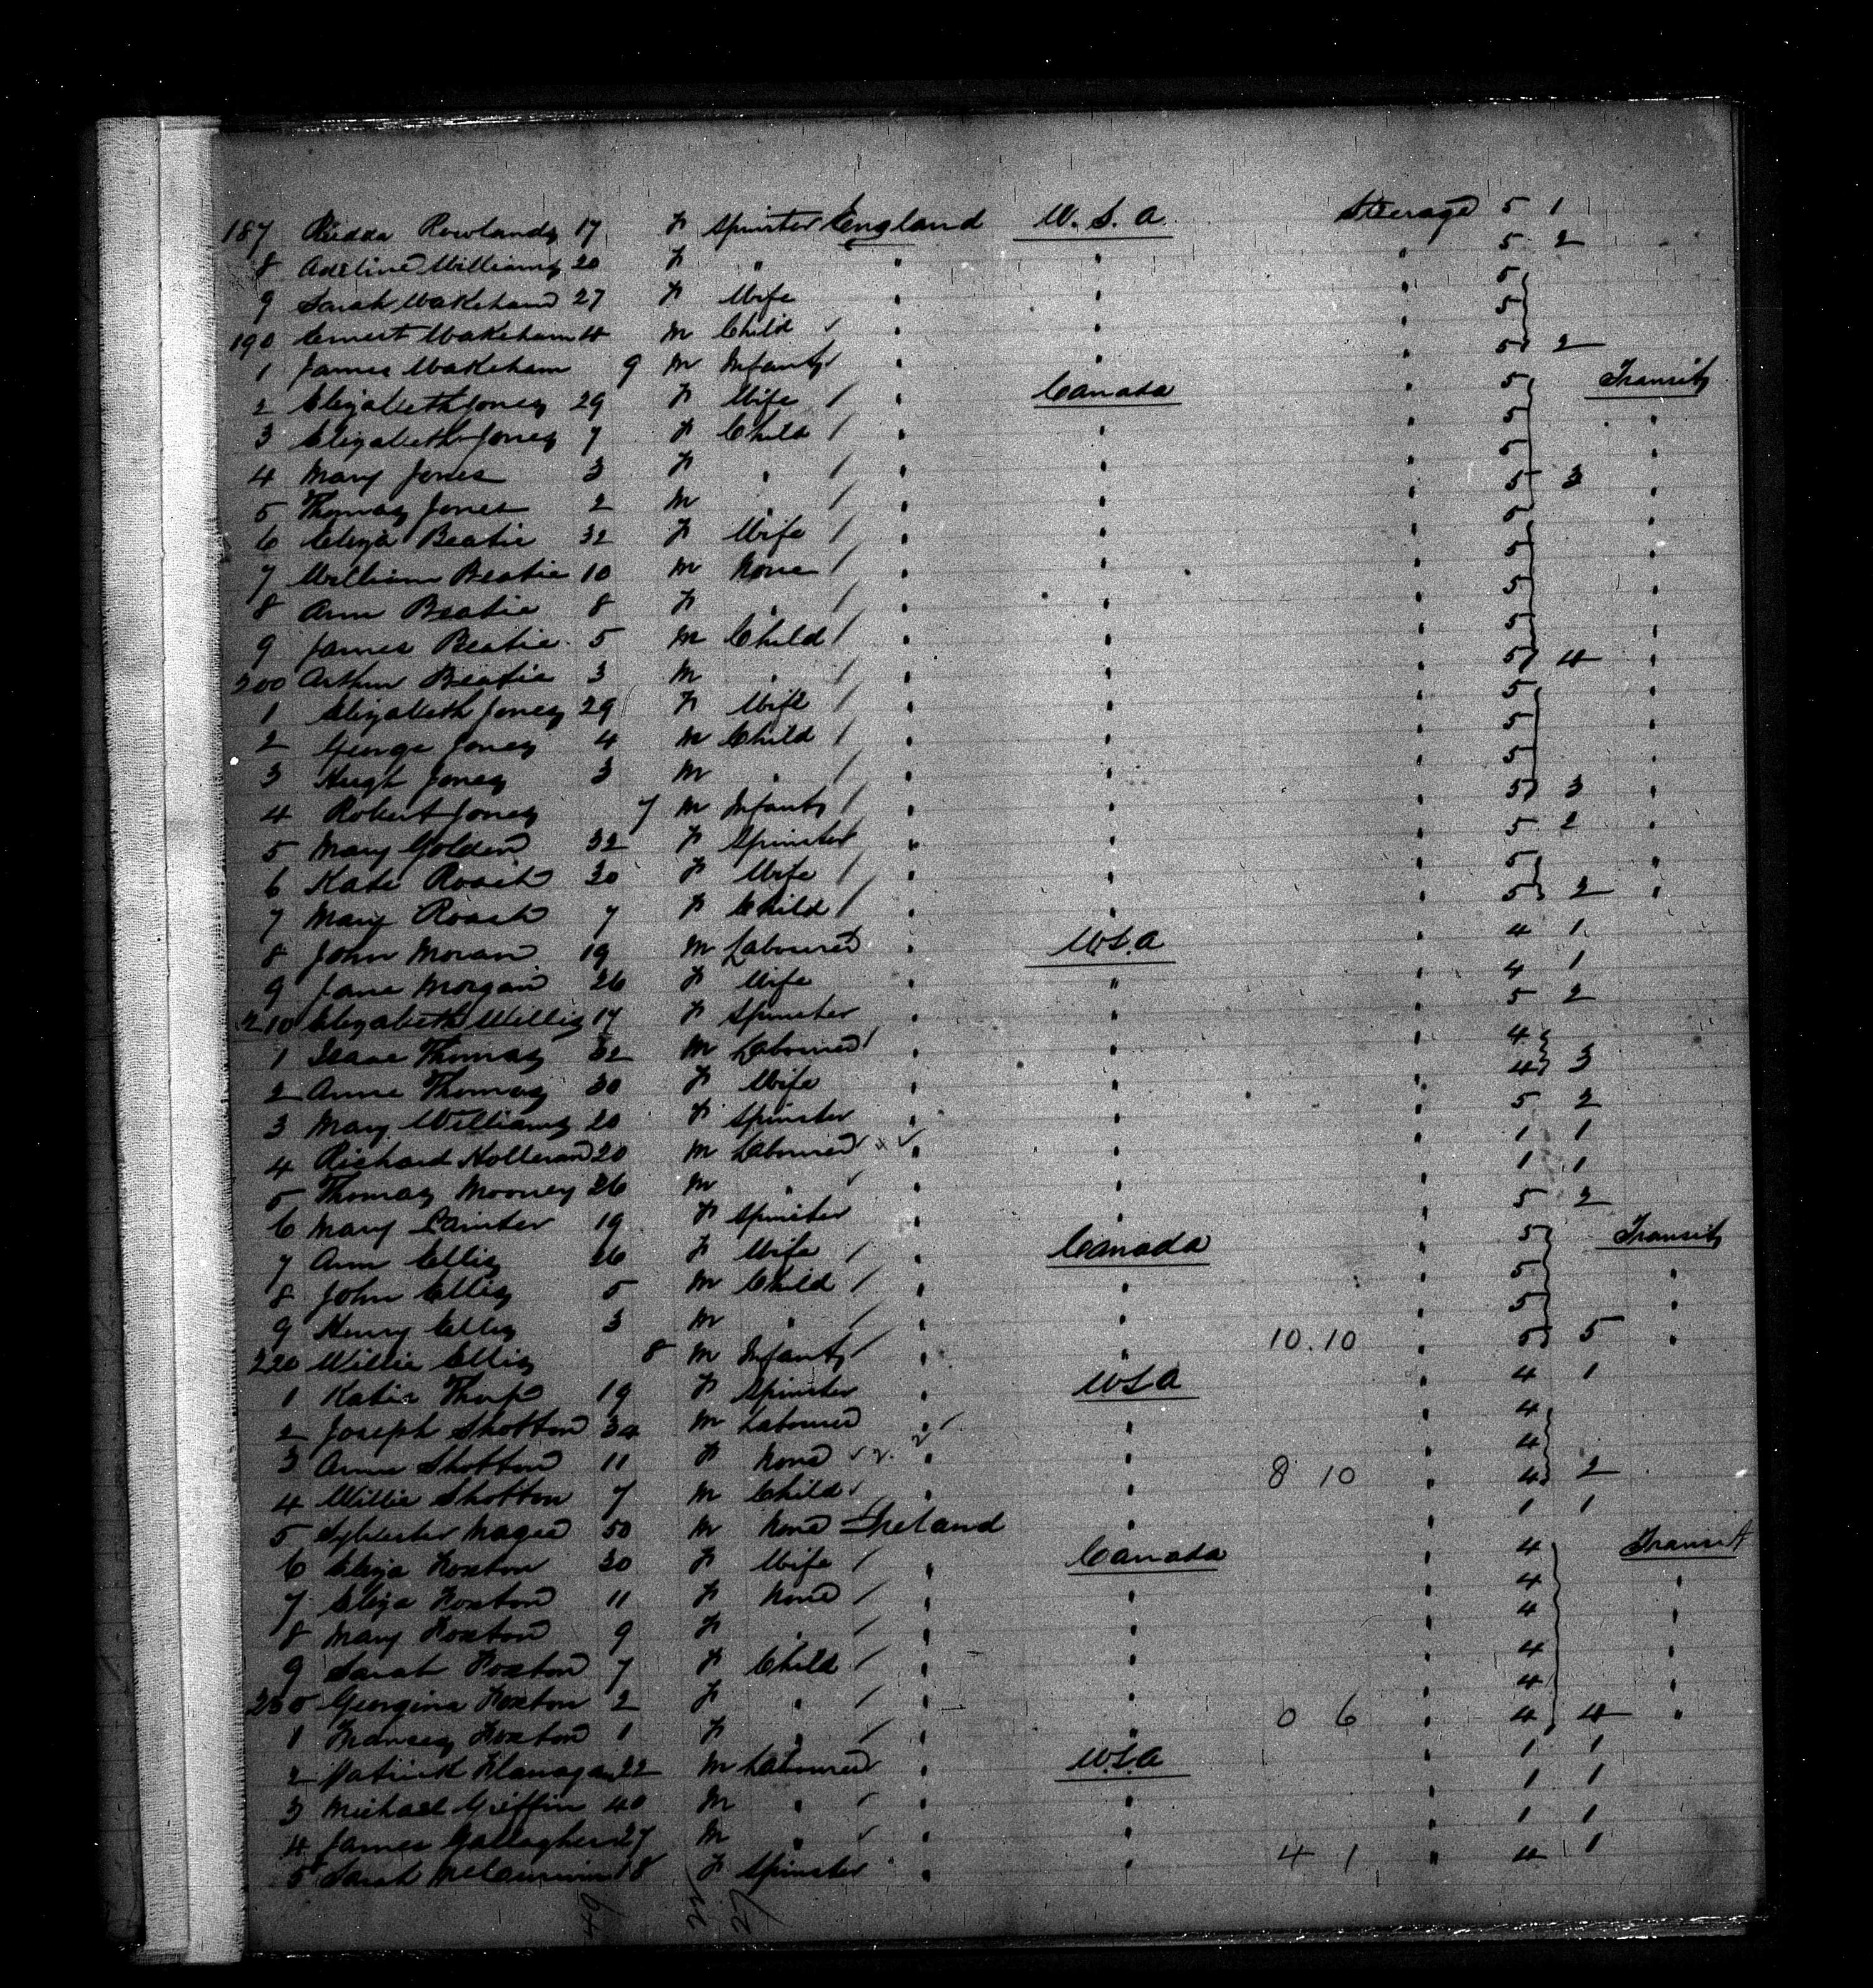 187 Rowlands 17 F Spinster England U.S.A. Steerage 5 1
8 Adeline Williams 20 F " " " " 5 2
9 Sarah Wakeham 27 F Wife " " " 5
190 Ernest Wakeham 4 M Child " " " 5
1 James Wakeham 9 M Infant " " " 5 2
2 Elizabeth Jones 29 F Wife " Canada " 5 Transit
3 Elizabeth Jones 7 F Child " " " 5 "
4 Mary Jones 3 F " " " " 5 "
5 Thomas Jones 2 M " " " " 5 3 "
6 Eliza Beatie 32 F Wife " " " 5 "
7 William Beatie 10 M None " " " 5 "
8 Ann Beatie 8 F " " " " 5 "
9 James Beatie 5 M Child " " " 5 "
200 Arthur Beatie 3 M " " " " 5 4 "
1 Elizabeth Jones 29 F Wife " " " 5 "
2 George Jones 4 M Child " " " 5 "
3 Hugh Jones 3 M " " " " 5 "
4 Robert Jones 7 M Infant " " " 5 3 "
5 Mary Golden 32 F Spinster " " " 5 2 "
6 Kate Roach 30 F Wife " " " 5 "
7 Mary Roach 7 F Child " " " 5 2 "
8 John Moran 19 M Labourer " U.S.A " 4 1
9 Jane Morgan 26 F Wife " " " 4 1
210 Elizabeth Willis 17 F Spinster " " " 5 2
1 Isaac Thomas 32 M Labourer " " " 4
2 Anne Thomas 30 F Wife " " " 4 3
3 Mary Williams 20 F Spinster " " " 5 2
4 Richard Holleran 20 M Labourer " " " 1 1
5 Thomas Mooney 26 M " " " " 1 1
6 Mary 19 F Spinster " " " 5 2
7 Ann Ellis 26 F Wife " Canada " 5 Transit
8 John Ellis 5 M Child " " " 5 "
9 Henry Ellis 3 M " " " " 5 "
220 Willie Ellis 8 M Infant " " 10.10 " 5 5 "
1 Katie Thorp 19 F Spinster " U.S.A " 4 1
2 Joseph Shotton 34 M Labourer " " " 4
3 Anne Shotton 11 F None " " " 4
4 Willie Shotton 7 M Child " " 8 10 " 4 2
5 Sylvester Magee 50 M None Ireland " " 1 1
6 Eliza Foxton 30 F Wife " Canada " 4 Transit
7 Eliza Foxton 11 F None " " " 4 "
8 Mary Foxton 9 F " " " " 4 "
9 Sarah Foxton 7 F Child " " " 4 "
230 Georgina Foxton 2 F " " " " 4 "
1 Foxton 1 F " " " 0 6 " 4 4 "
2 Patrick Flanagan 22 M Labourer " U.S.A " 1 1
3 Michael Griffin 40 M " " " " 1 1
4 James Gallagher 27 M " " " " 1 1
5 Sarah 18 F Spinster " " 4 1 " 4 1